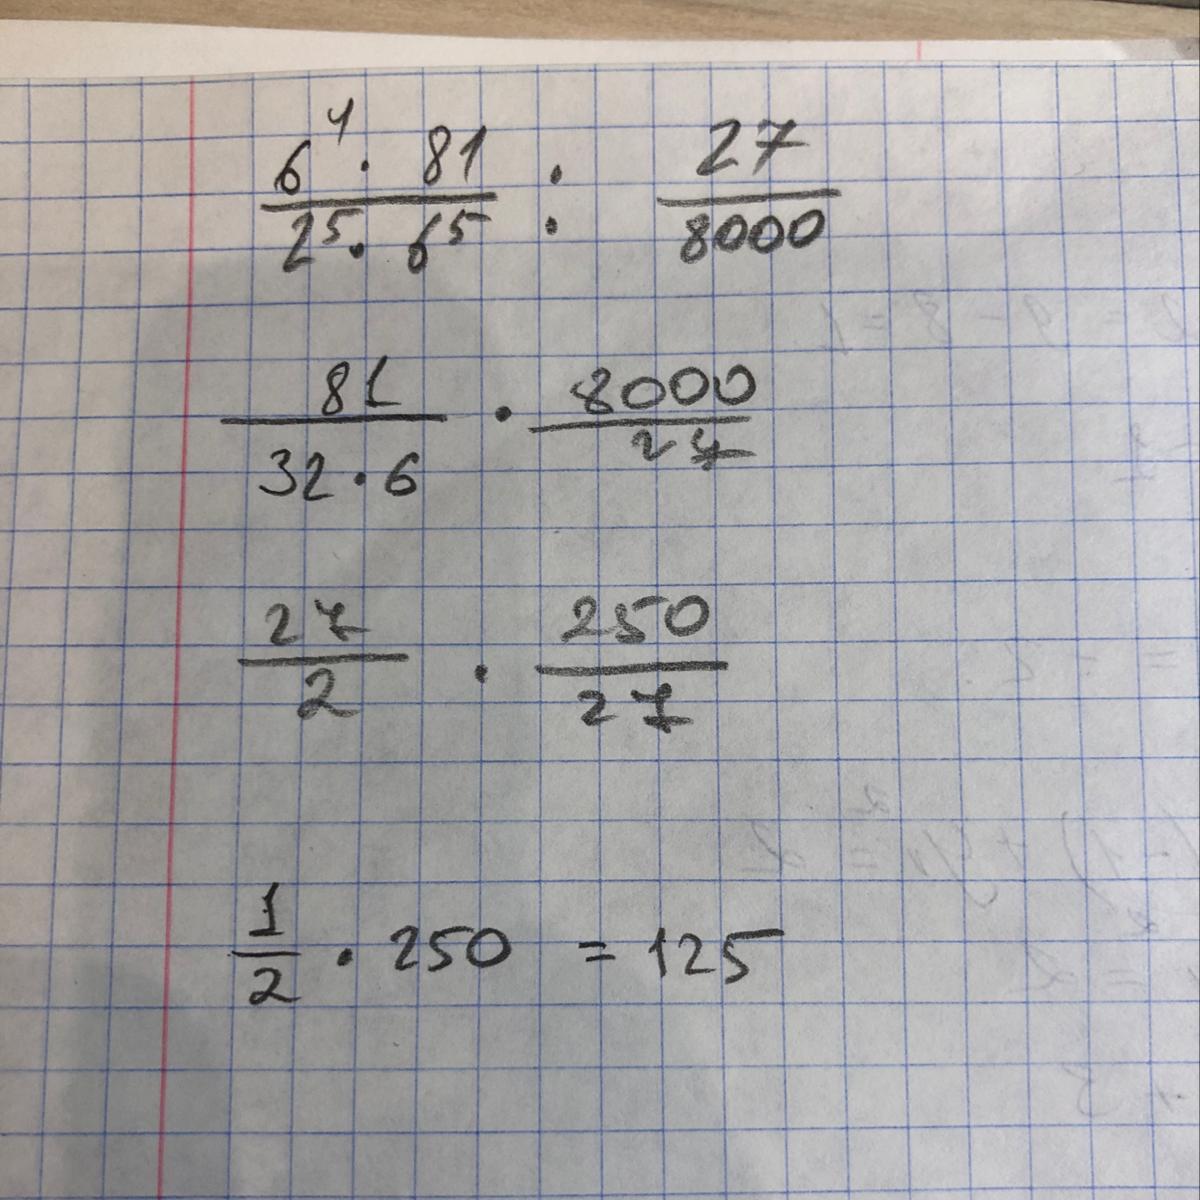 6⁴ · 81 / 2⁵ · 6⁵ : 27 / 8000
81 / 32 · 6 · 8000 / 27
27 / 2 · 250 / 27
1 / 2 · 250 = 125